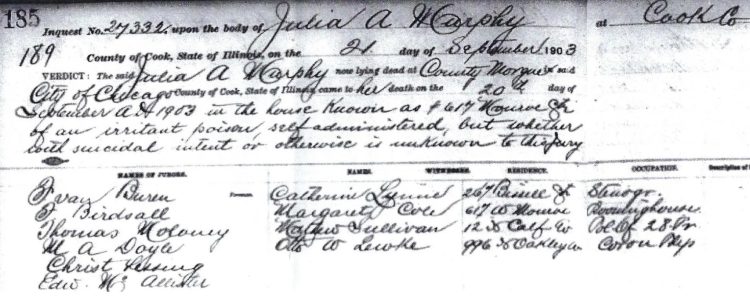 185
Inquest No. 27332. upon the body of Julia A Murphy at Cook Co
189 County of Cook, State of Illinois, on the 21 day of September 1903
VERDICT: The said Julia A Murphy now lying dead at County Morgue said
City of Chicago County of Cook, State of Illinois, came to her death on the 20th day of
September A D 1903 in the house known as # 617 Monroe St
of an irritant poison, self administered, but whether
with suicidal intent or otherwise is unknown to this jury
NAMES OF JURORS. NAMES. WITNESSES. RESIDENCE. OCCUPATION. Description of
F van Buren Foreman. Catherine Lynne 267 Bissell St Stenogr.
F Birdsall Margaret Cole 617 W Monroe Roominghouse
Thomas Moloney Mathew Sullivan 12 Calf Av P.O. 28 Pr
M A Doyle Otto W Lewke 996 N Oakley av Coron Phy
Christ Lessing
Edw. Mc Allister